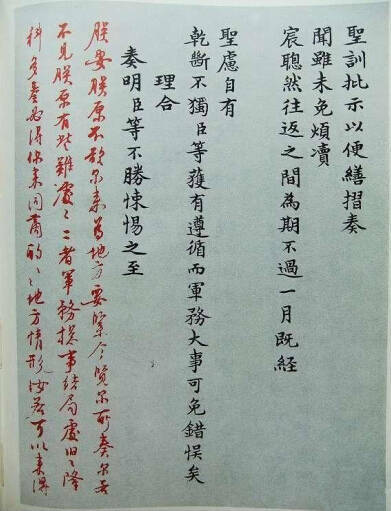 聖訓批示以便繕摺奏
聞雖未免煩瀆
宸聰然往返之間為期不過一月既經
聖慮自有
乾斷不獨臣等獲有遵循而軍務大事可免錯悞矣
理合
奏明臣等不勝悚惕之至
朕安朕原不欲尔来為地方要緊今覽尔所奏尔若
不見朕原有些難處〻二者軍務摠事結局處旧〻隆
科多奏必得你来同商酌〻地方情形汝若可以来得